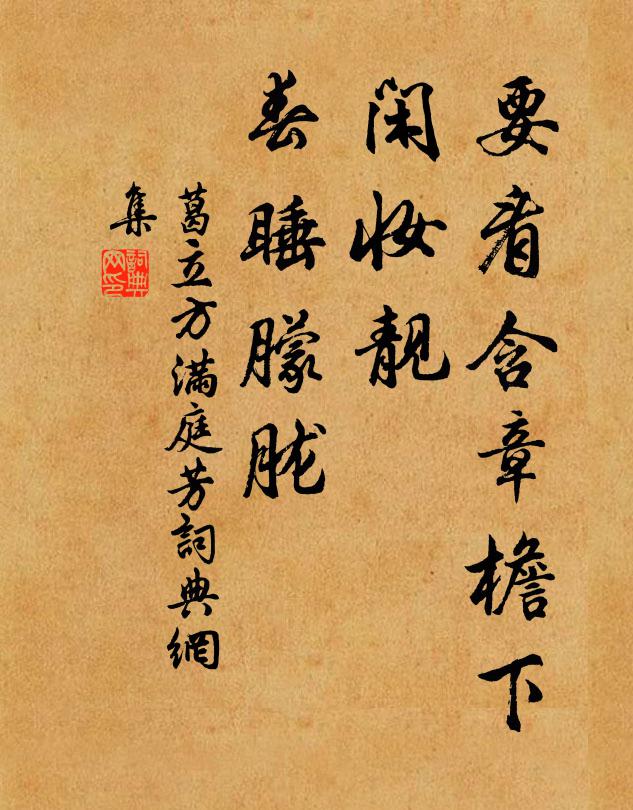 要看含章檐下
閑妝靚
春睡朦朧
葛立方滿庭芳詞典網
集
詞典
网印